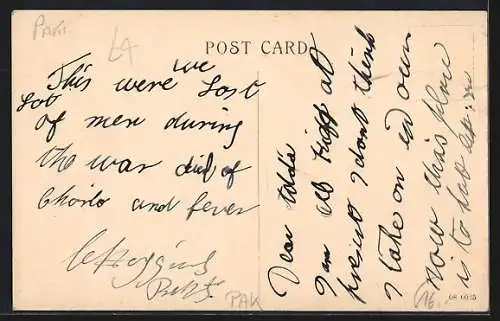 PAKI
64
POST CARD
This were we Lost
Lot
of men during
the war died of
Chorlo and fever
C Higgins
PAK
Dear
I am all right at
present I dont think
I take on end own
now this place
is to
16